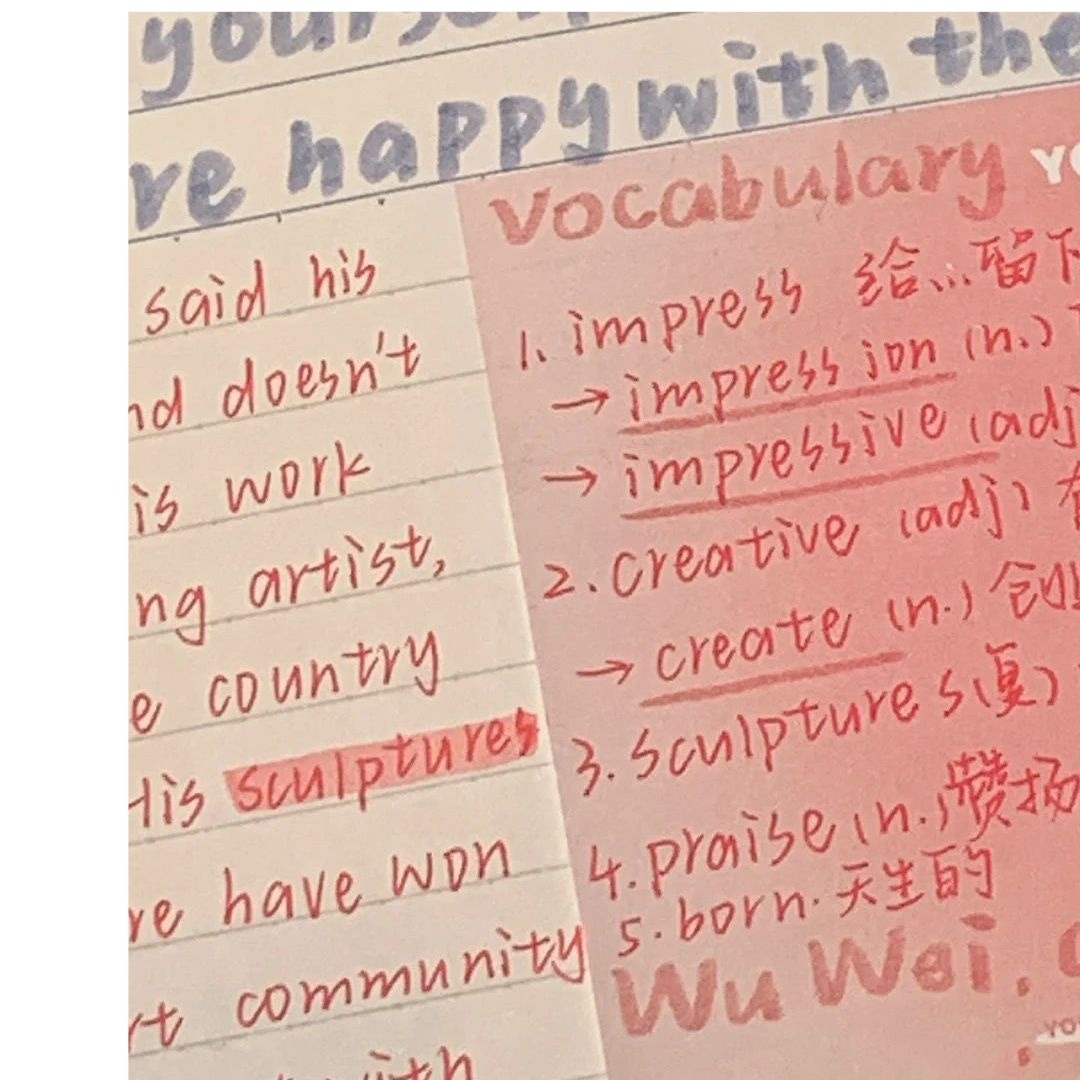 happy with the
said his
doesn't
is work
artist,
country
His sculptures
have won
community
Vocabulary
1. impress 给...留下
→ impression (n.)
→ impressive (adj
2. creative (adj) 有
→ create (n.) 创业
3. sculptures (复)
4. praise (n.) 赞扬
5. born. 天生的
Wu Wei.